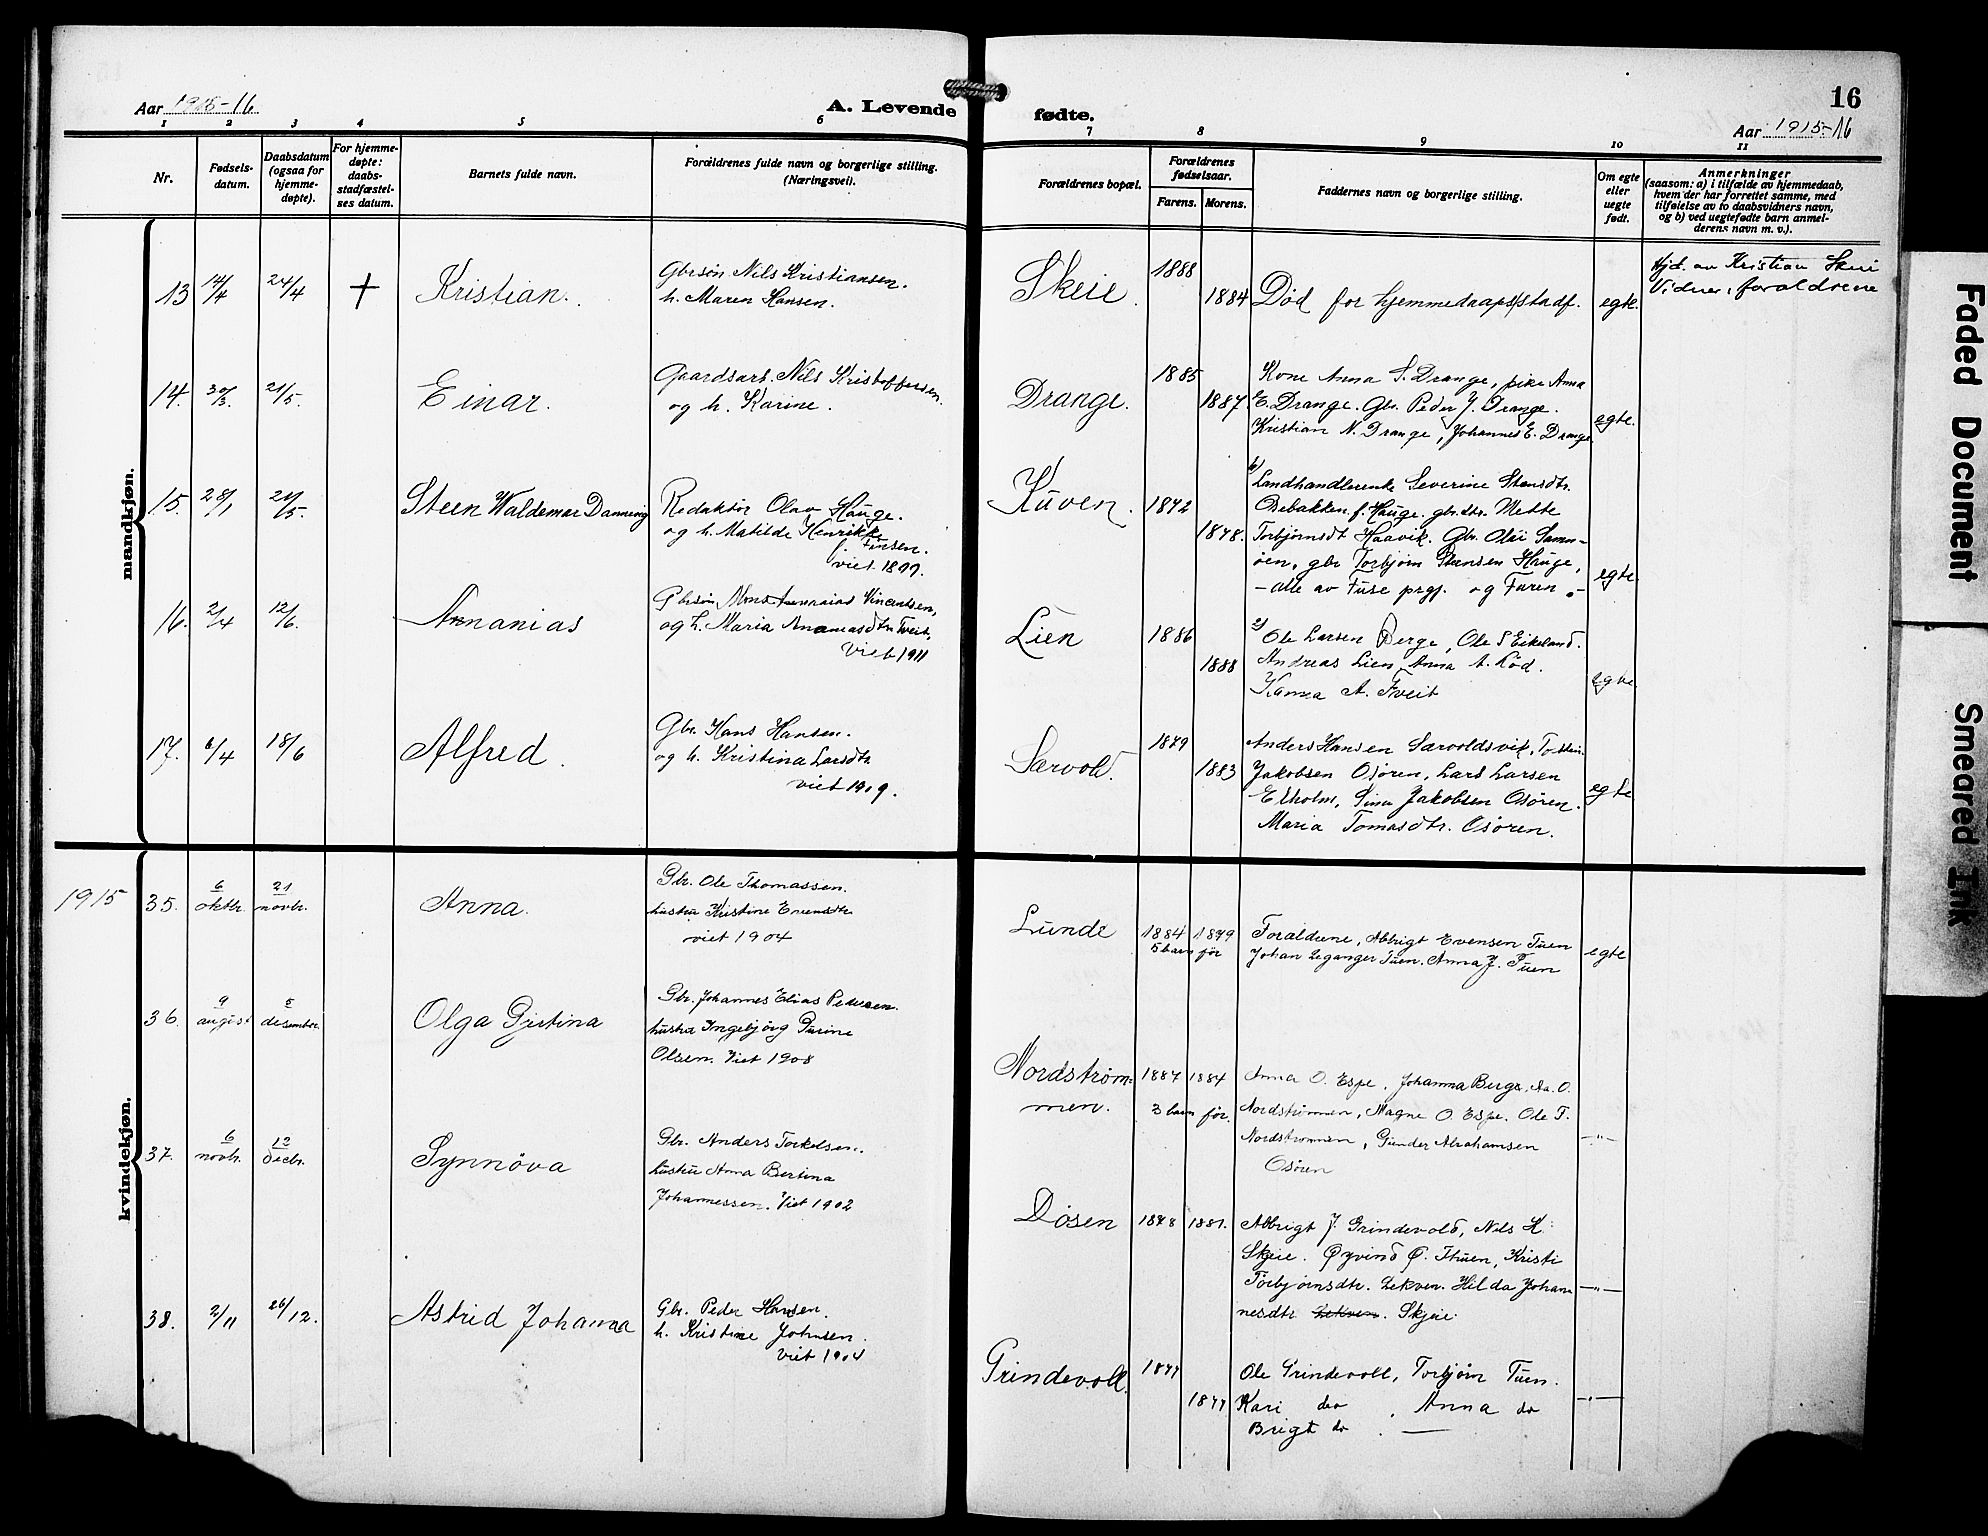 Aar 1915-16
A. Levende
fødte.
16
Aar 1915-16
1 2 3 4 5 6 7 8 9 10 11
Nr.
Fødsels-
datum.
Daabsdatum
(ogsaa for
hjemme-
døpte).
For hjemme-
døpte:
daabs-
stadfæstel-
ses datum.
Barnets fulde navn.
Forældrenes fulde navn og borgerlige stilling.
(Næringsvei).
Forældrenes bopæl.
Forældrenes
fødselsaar.
Farens. Morens.
Faddernes navn og borgerlige stilling.
Om egte
eller
uegte
født.
Anmerkninger
(saasom: a) i tilfælde av hjemmedaab,
hvem der har forrettet samme, med
tilføielse av to daabsvidners navn,
og b) ved uegtefødte barn anmel-
derens navn m. v.).
mandkjøn.
13 14/4 24/4 + Kristian.
Gbrsøn Nils Kristiansen.
h. Maren Hansen.
Skeie. 1888 1884
Død for hjemmedaaps/stadf.
egte.
Hjd. av Kristian Skeie
Vidner: foraldrene
14. 30/3. 21/5. Einar.
Gaardsarb. Nils Kristoffersen.
og h. Karine.
Drange. 1885 1887.
Kone Anna S. Drange, pike Anna
E. Drange. Gbr. Peder J. Drange.
Kristian N. Drange, Johannes E. Drange
egte.
15. 28/1 21/5. Steen Waldemar Danneng
Redaktør Olav Hauge.
og h. Matilde Henrikke
Finsen.
viet 1899.
Kuven. 1872 1878.
Landhandlerenke Severine Stensdtr.
Øebakken f. Hauge. gbr.dtr. Mette
Torbjørnsdt Haavik. Gbr. Olai Samn-
øen, gbr Torbjørn Stensen Hauge,
- alle av Fuse prgj. og Faren.-
egte.
16. 2/4 12/6. Annanias
Gbrsøn Mons Annanias Vincentsen,
og h. Maria Ananiasdtr. Tveit,
Viet 1911
Lien 1886 1888
Ole Larsen Berge, Ole S Eikeland.
Andreas Lien, Anna A. Lød.
Hanna A. Tveit
egte.
17. 6/4 18/6 Alfred.
Gbr. Hans Hansen.
og h. Kristina Larsdtr
viet 1909.
Særvold. 1879 1883
Anders Hansen Særvoldsvik,
Jakobsen Osøren, Lars Larsen
Elholm, Sina Jakobsen Osøren.
Maria Tomasdtr. Osøren.
egte
kvindekjøn.
1915 35. 6 oktbr. 21 novbr. Anna.
Gbr. Ole Thomassen.
hustru Kristine Evensdtr
viet 1904
Lunde 1884 1879
5 barn før
Foraldrene, Abrigt Evensen Tuen
Johan Leganger Tuen. Anna J. Tuen
egte
36. 9 august 5 desember. Olga Gjertina
Gbr. Johannes Elias Pedersen.
hustru Ingebjørg Gurine
Olsen. Viet 1908
Nordstrøm-
men. 1887 1884
3 barn før.
Anna O. Espe, Johanna Berge, Aa. O.
Nordstrømmen, Magne O. Espe. Ole T.
Nordstrømmen, Gunder Abrahamsen
Osøren
-"-
37. 6 novbr. 12 decbr. Synnøva
Gbr. Anders Torkelsen.
hustru Anna Bertina
Johannessen. Viet 1902
Døsen 1878 1881.
Abbrigt J Grindevold, Nils K.
Skjeie. Øyvind Ø. Thuen, Kristi
Torbjørnsdtr. Lekven. Hilda Johan
nesdtr. Lekven. Skjeie
-"-
38. 2/11 26/12. Astrid Johanna
Gbr. Peder Hansen.
h. Kristine Johnsen.
viet 1904
Grindevoll. 1877 1877
Ole Grindevoll, Torbjørn Tuen.
Kari do. Anna do
Brigt do. —
-"-
Faded Document
Smeared Ink